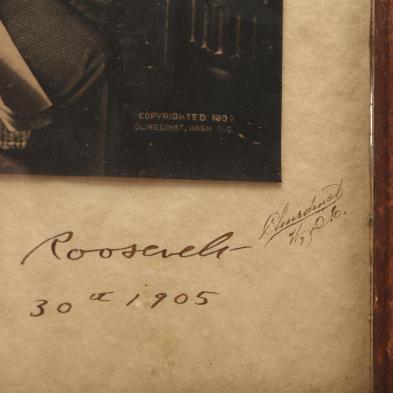 COPYRIGHTED 1902
CLINEDINST, WASH D.C.
Roosevelt
30th 1905
Clinedinst